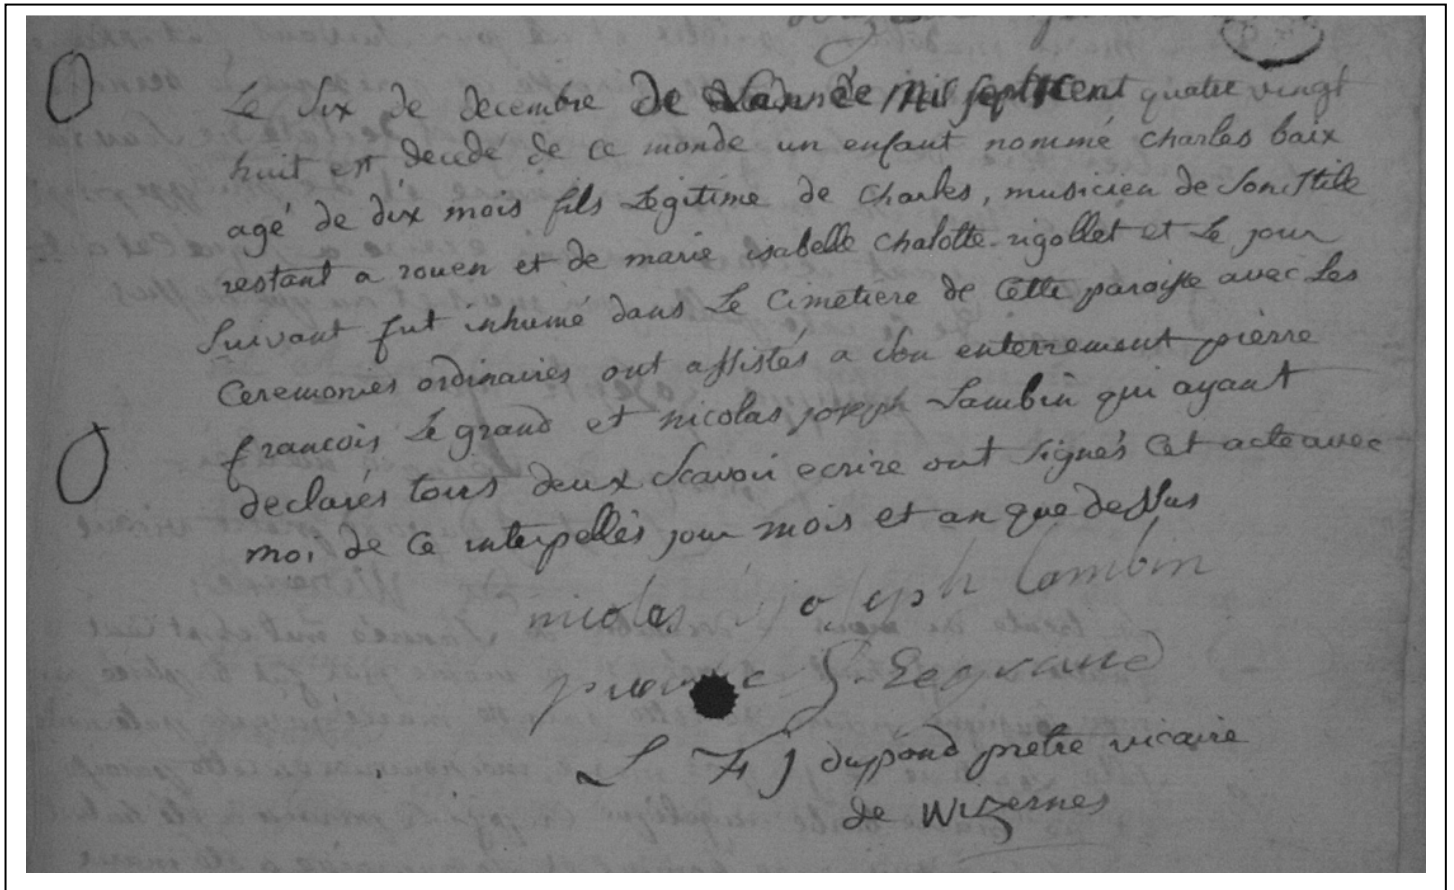 Le dix de decembre de Lannée mil sept cent quatre vingt
huit est decede de ce monde un enfant nommé charles baix
agé de dix mois fils Legitime de charles, musicien de son stile
restant a rouen et de marie isabelle chalotte rigollet et Le jour
suivant fut inhumé dans Le cimetiere de cette paroisse avec Les
ceremonies ordinaires ont assistés a son enterrement pierre
francois Le grand et nicolas joseph Lambin qui ayant
declarés tous deux scavoir ecrire ont signés cet acte avec
moi de ce interpellés jour mois et an que dessus
nicolas joseph lambin
Legrand
L F J dupond prétre vicaire
de Wizernes